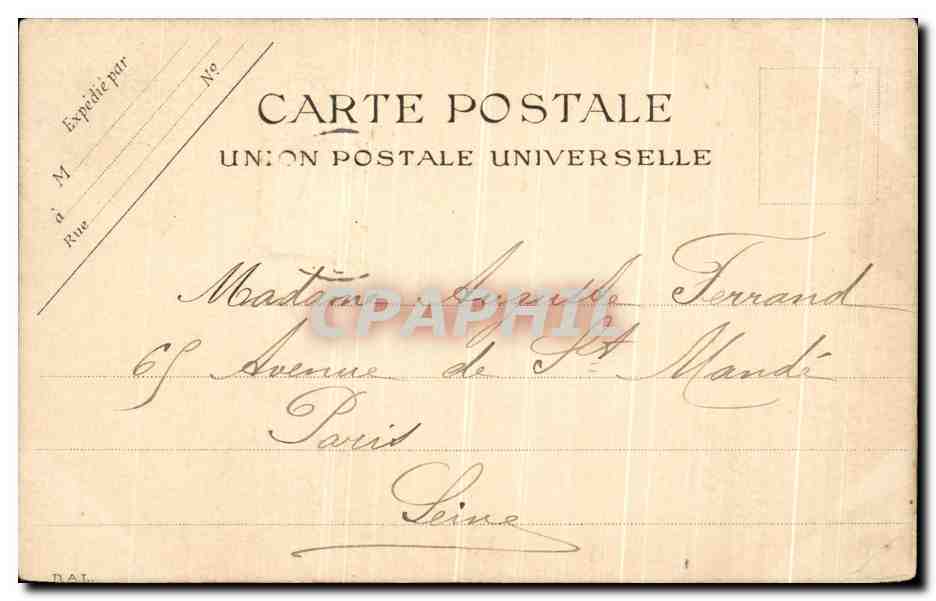 Expédié par
M
à
Rue Nº
CARTE POSTALE
UNION POSTALE UNIVERSELLE
Madame Auguste Ferrand
65 Avenue de St Mandé
Paris
Seine
CPAPHIL
D.A.L.